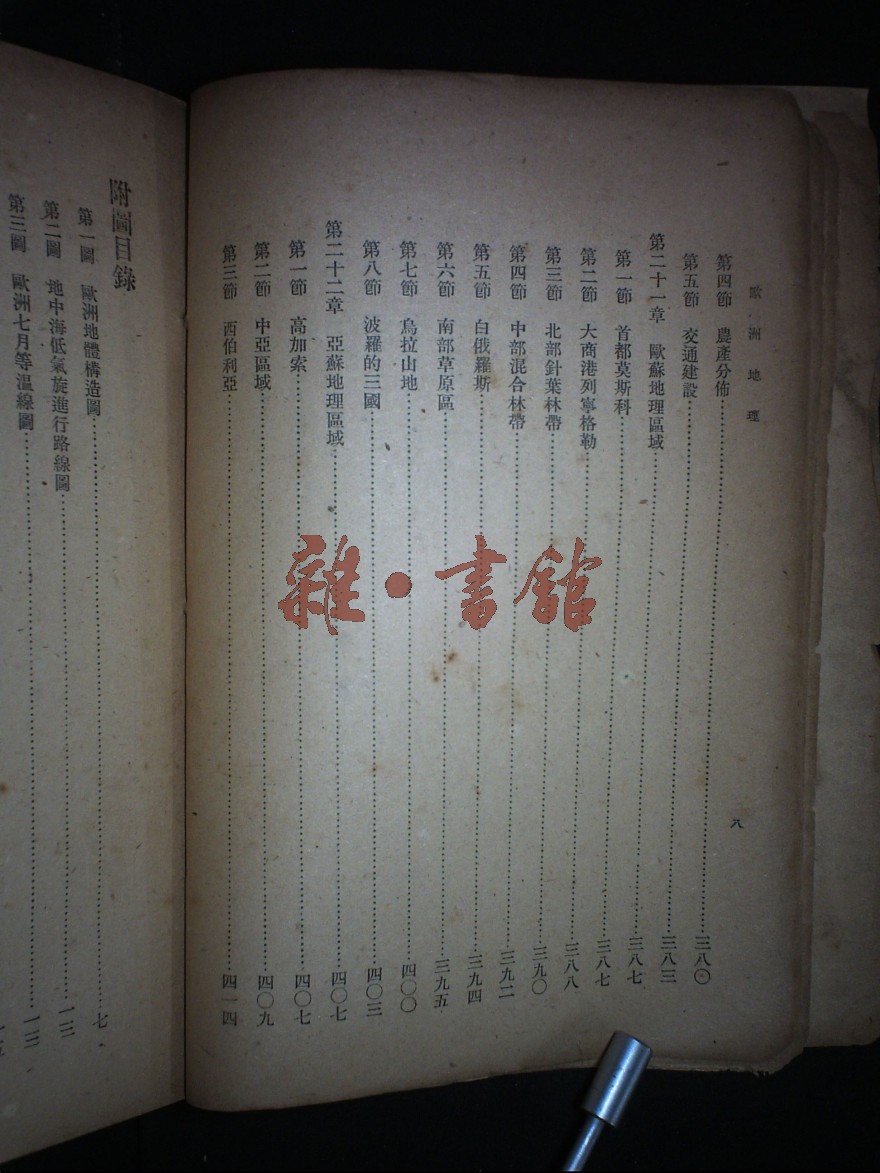 歐洲地理
八
第四節 農產分佈……三八〇
第五節 交通建設……三八三
第二十一章 歐蘇地理區域……三八七
第一節 首都莫斯科……三八七
第二節 大商港列寧格勒……三八八
第三節 北部針葉林帶……三九〇
第四節 中部混合林帶……三九二
第五節 白俄羅斯……三九四
第六節 南部草原區……三九五
第七節 烏拉山地……四〇〇
第八節 波羅的三國……四〇三
第二十二章 亞蘇地理區域……四〇七
第一節 高加索……四〇七
第二節 中亞區域……四〇九
第三節 西伯利亞……四一四
附圖目錄
第一圖 歐洲地體構造圖……七
第二圖 地中海低氣旋進行路線圖……一三
第三圖 歐洲七月等溫線圖……一三
雜·書館